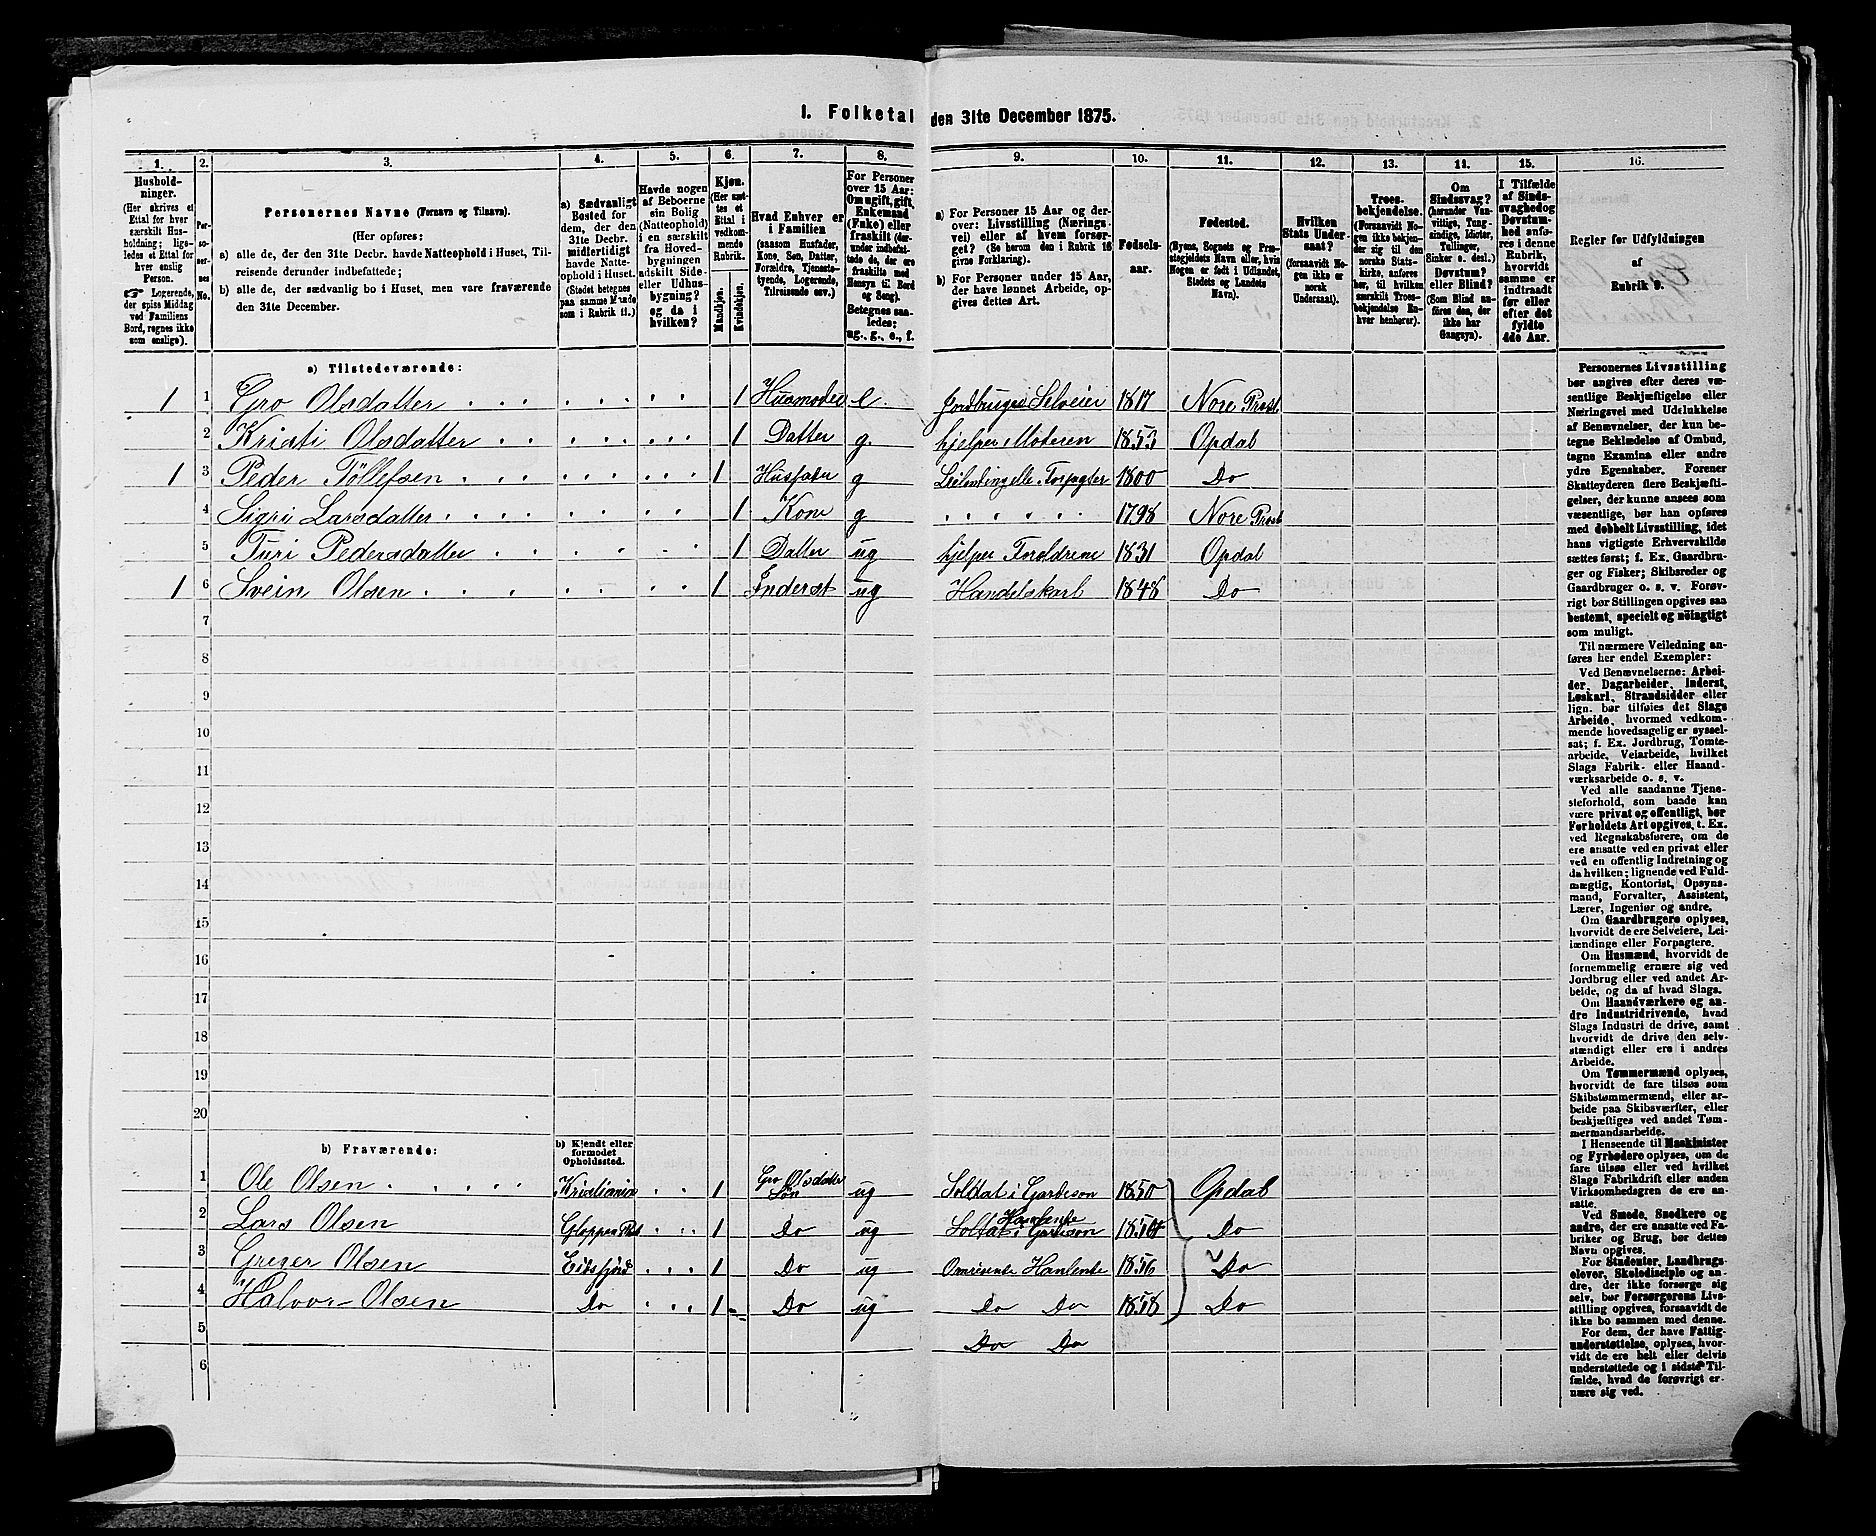 I. Folketal den 31te December 1875.
1. 2. 3. 4. 5. 6. 7. 8. 9. 10. 11. 12. 13. 14. 15. 16.
Husholdninger.
(Her skrives et
Ettal for hver
særskilt Husholdning;
ligeledes
et Ettal for
hver enslig
Person.
☞ Logerende,
der spise Middag
ved Familiens
Bord, regnes ikke
som enslige).
Personernes No.
Personernes Navne (Fornavn og Tilnavn).
(Her opføres:
a) alle de, der den 31te Decbr. havde Natteophold i Huset, Tilreisende derunder indbefattede;
b) alle de, der sædvanlig bo i Huset, men vare fraværende
den 31te December.
a) Sædvanligt
Bosted for
dem, der den
31te Decbr.
midlertidigt
havde Natteophold
i Huset.
(Stedet betegnes
paa samme Maade
som i Rubrik 11.)
Havde nogen
af Beboerne
sin Bolig
(Natteophold)
i en særskilt
fra Hovedbygningen
adskilt Side-
eller Udhusbygning?
og da i
hvilken?
Kjøn.
(Her sættes
et
Ettal i
vedkommende
Rubrik.
Mandkjøn. Kvindekjøn.
Hvad Enhver er
i Familien
(saasom Husfader,
Kone, Søn, Datter,
Forældre, Tjenestetyende,
Logerende,
Tilreisende osv.)
For Personer
over 15 Aar:
Om ugift, gift,
Enkemand
(Enke) eller
fraskilt (derunder
indbefattede
de, der ere
fraskilte med
Hensyn til Bord
og Seng).
Betegnes saaledes:
ug., g., e., f.
a) For Personer 15 Aar og derover:
Livsstilling (Næringsvei)
eller af hvem forsørget?
(Se herom den i Rubrik 16
givne Forklaring).
b) For Personer under 15 Aar,
der have lønnet Arbeide, opgives
dettes Art.
Fødselsaar.
Fødested.
(Byens, Sognets og Præstegjeldets
Navn eller, hvis
Nogen er født i Udlandet,
Stedets og Landets
Navn).
Hvilken
Stats Undersaat?
(forsaavidt Nogen
ikke er
norsk
Undersaat).
Troesbekjendelse.
(Forsaavidt Nogen
ikke bekjender
sig til den
norske Statskirke,
anføres
her, til hvilken
særskilt Troesbekjendelse
Enhver
henhører).
Om
Sindssvag?
(herunder Vanvittige,
Tungsindige,
Idioter,
Tullinger,
Sinker o. desl.)
Døvstum?
eller Blind?
(Som Blind anføres
den, der
ikke har
Gangsyn).
I Tilfælde
af Sindssvaghed
og
Døvstumhed
anføres
i denne
Rubrik,
hvorvidt
samme er
indtraadt
før eller
efter det
fyldte
4de Aar.
Regler for Udfyldningen
af
Rubrik 9.
a) Tilstedeværende:
1 1 Gro Olsdatter 1 Husmoder e Jordbruger Selveier 1817 Nore Præst
2 Kristi Olsdatter 1 Datter g. hjelper Moderen 1853 Opdal
1 3 Peder Tøllefsen 1 Husfader g 1800 Do
4 Sigri Larsdatter 1 Kone g 1798 Nore Præst
5 Turi Pedersdatter 1 Datter ug hjelper Foreldrene 1831 Opdal
1 6 Svein Olsen 1 Inderst ug Handelskarl 1848 Do
7
8
9
10
11
12
13
14
15
16
17
18
19
20
b) Fraværende:
b) Kjendt eller
formodet
Opholdssted.
1 Ole Olsen Kristiania 1 Gro Olsdatter Søn ug Soldat i Gardeson 1850 Opdal
2 Lars Olsen 1 Do ug Soldat i Gardeson Hanlende Do
3 Greger Olsen Eidsfjord 1 Do ug Omreisende Hanlende 1856 Do
4 Halvor Olsen Do 1 Do ug Do Do 1858 Do
5 Do Do
6
Personernes Livsstilling
bør angives efter deres væsentlige
Beskjæftigelse eller
Næringsvei med Udelukkelse
af Benævnelser, der kun betegne
Beklædelse af Ombud,
tagne Examina eller andre
ydre Egenskaber. Forener
Skatteyderen flere Beskjæftigelser,
der kunne ansees som
væsentlige, bør han opføres
med dobbelt Livsstilling, idet
hans vigtigste Erhvervskilde
sættes først; f. Ex. Gaardbruger
og Fisker; Skibsreder og
Gaardbruger o. s. v. Forøvrigt
bør Stillingen opgives saa
bestemt, specielt og nøiagtigt
som muligt.
Til nærmere Veiledning anføres
her endel Exempler:
Ved Benævnelserne: Arbeider,
Dagarbeider, Inderst,
Løskarl, Strandsidder eller
lign. bør tilføies det Slags
Arbeide, hvormed vedkommende
hovedsagelig er sysselsat;
f. Ex. Jordbrug, Tomtearbeide,
Veiarbeide, hvilket
Slags Fabrik- eller Haandværksarbeide
o. s. v.
Ved alle saadanne Tjenesteforhold,
som baade kan
være privat og offentligt, bør
Forholdets Art opgives, t. Ex.
ved Regnskabsførere, om de
ere ansatte ved en privat eller
ved en offentlig Indretning og
da hvilken; lignende ved Fuldmægtig,
Kontorist, Opsynsmand,
Forvalter, Assistent,
Lærer, Ingeniør og andre.
Om Gaardbrugere oplyses,
hvorvidt de ere Selveiere, Leilændinge
eller Forpagtere.
Om Husmænd, hvorvidt de
fornemmelig ernære sig ved
Jordbrug eller ved andet Arbeide,
og da af hvad Slags.
Om Haandværkere og andre
industridrivende, hvad
Slags Industri de drive, samt
hvorvidt de drive den selvstændigt
eller ere i andres
Arbeide.
Om Tømmermænd oplyses,
hvorvidt de fare tilsøs som
Skibstømmermænd, eller arbeide
paa Skibsværfter, eller
beskjæftiges ved andet Tømmermandsarbeide.
I Henseende til Maskinister
og Fyrbødere oplyses, om de
fare tilsøs eller ved hvilket
Slags Fabrikdrift eller anden
Virksomhedsgren de ere ansatte.
Ved Smede, Snedkere og
andre, der ere ansatte ved Fabriker
og Brug, bør dettes
Navn opgives.
For Studenter, Landbrugselever,
Skoledisciple og andre,
der ikke forsørge sig
selv, bør Forsørgerens Livsstilling
opgives, forsaavidt de
ikke bo sammen med denne.
For dem, der have Fattigunderstøttelse,
oplyses, hvorvidt
de ere helt eller delvis
understøttede og i sidste Tilfælde,
hvad de forøvrigt ernære
sig ved.